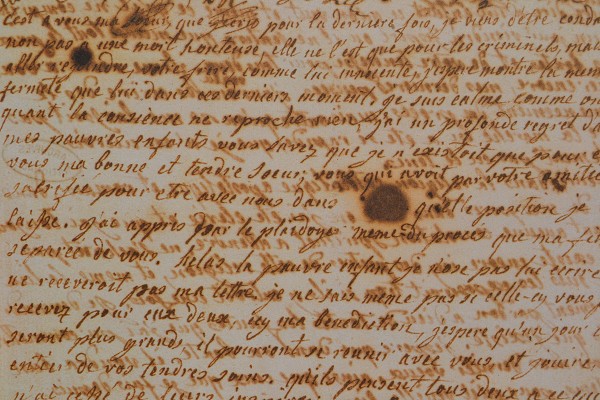 C'est a vous ma soeur, que j'ecris pour la derniere fois, je viens d'etre cond
non pas a une mort honteuse, elle ne l'est que pour les criminels, mais
aller rejoindre votre frere, comme lui innocente, j'espere montre la mem
fermeté que lui dans ces derniers moment. je suis calme comme on
quant la consience ne reproche rien, j'ai un profonde regret d'a
mes pauvres enfants vous savez que je n existoit que pour e
vous ma bonne et tendre soeur, vous qui avoit par votre amitie
sacrifie pour etre avec nous dans quelle position je
laisse. j'ai appris par le plaidoyer meme du proces que ma fil
separée de vous. helas la pauvre enfant je n'ose pas lui ecrire
ne receveroit pas ma lettre. je ne sais même pas si celle-cy vous
recevez pour eux deux, icy ma benediction, j'espere qu'un jour l
seront plus grands, il pourront se reunir avec vous et jouir
entier de vos tendres soins. qu'ils pensent tous deux a ce
n'ai cessé de leurs